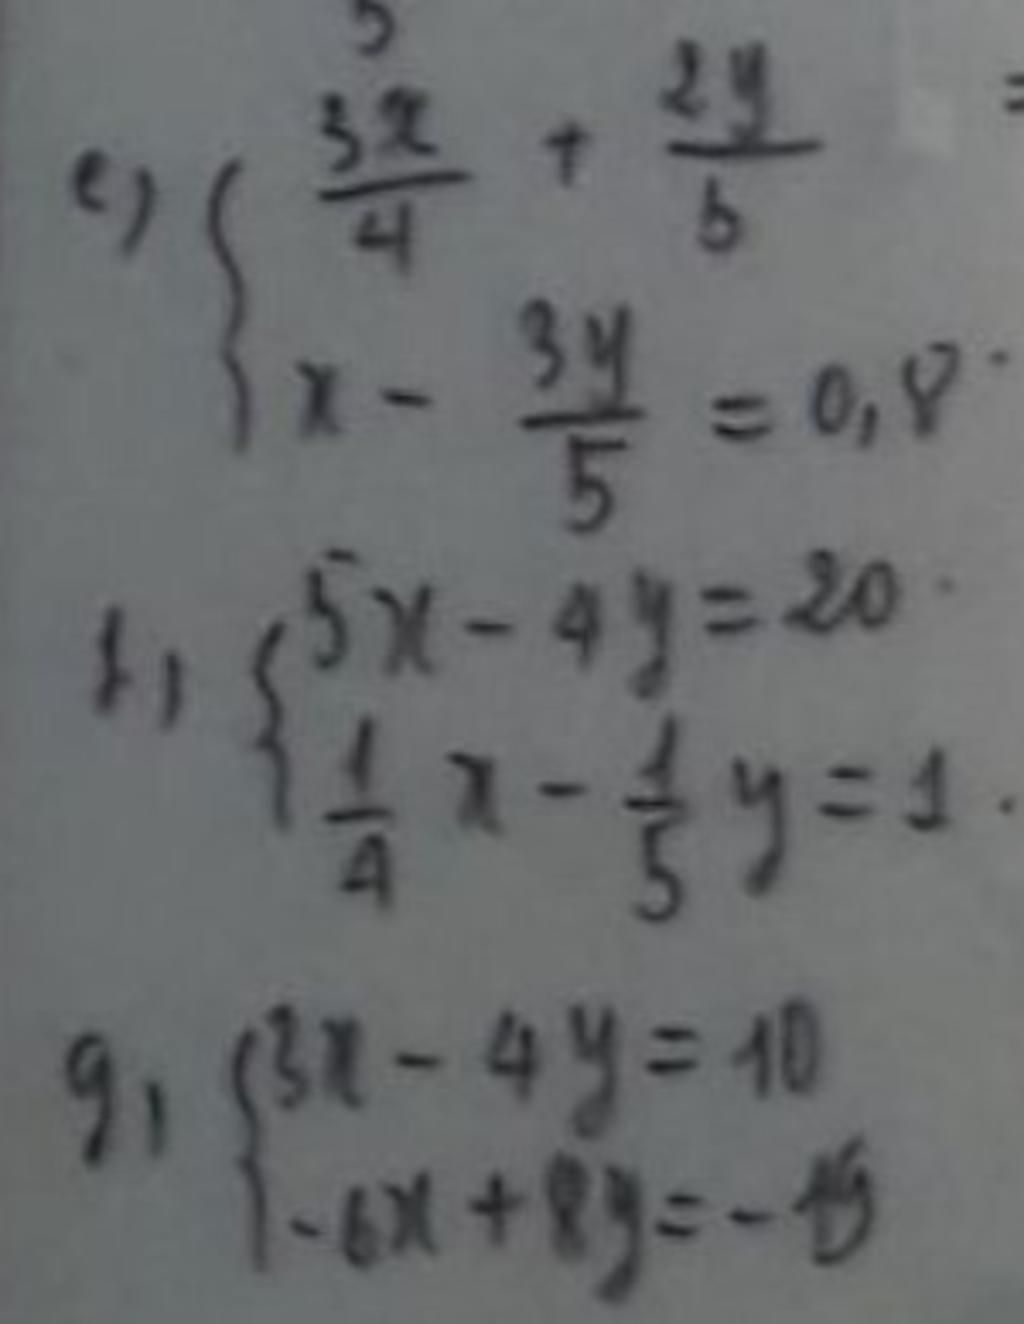 5
e, { 3x/4 + 2y/5 =
x - 3y/5 = 0,8
f, { 5x - 4y = 20
1/4 x - 1/5 y = 1.
g, { 3x - 4y = 10
-6x + 8y = -